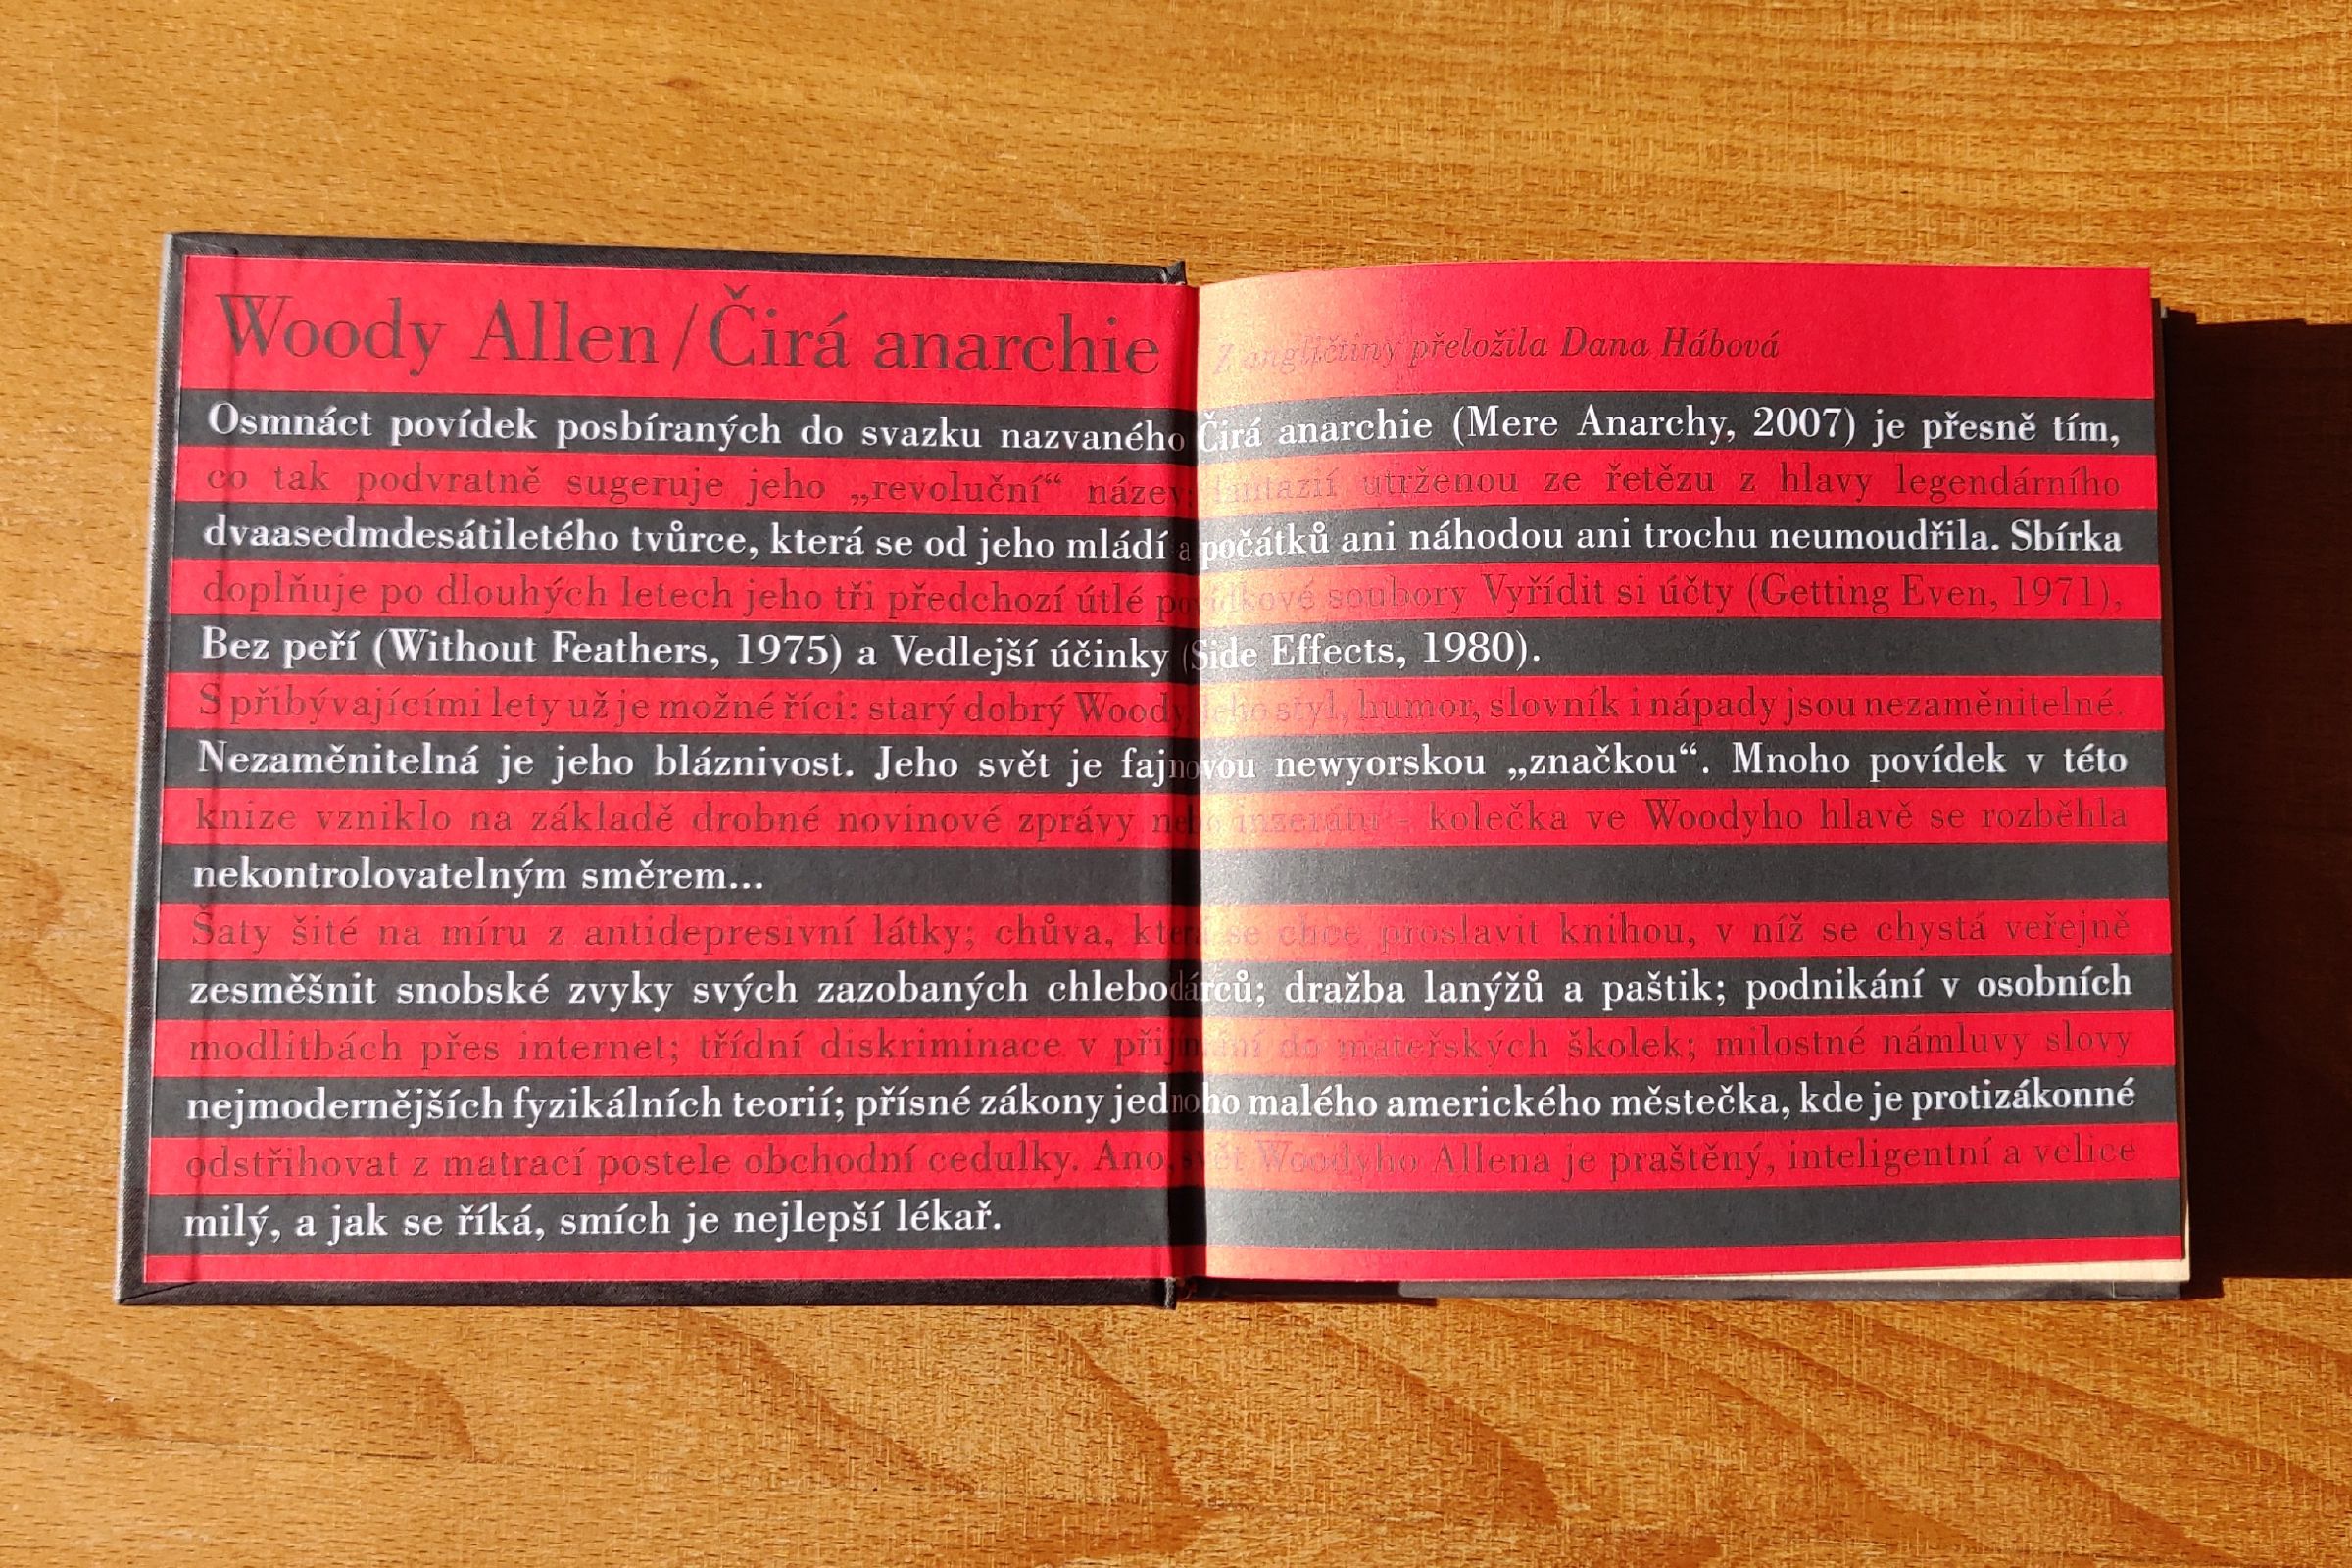 Woody Allen / Čirá anarchie Z angličtiny přeložila Dana Hábová
Osmnáct povídek posbíraných do svazku nazvaného Čirá anarchie (Mere Anarchy, 2007) je přesně tím,
co tak podvratně sugeruje jeho „revoluční“ název: fantazií utrženou ze řetězu z hlavy legendárního
dvaasedmdesátiletého tvůrce, která se od jeho mládí a počátků ani náhodou ani trochu neumoudřila. Sbírka
doplňuje po dlouhých letech jeho tři předchozí útlé povídkové soubory Vyřídit si účty (Getting Even, 1971),
Bez peří (Without Feathers, 1975) a Vedlejší účinky (Side Effects, 1980).
S přibývajícími lety už je možné říci: starý dobrý Woody, jeho styl, humor, slovník i nápady jsou nezaměnitelné.
Nezaměnitelná je jeho bláznivost. Jeho svět je fajnovou newyorskou „značkou“. Mnoho povídek v této
knize vzniklo na základě drobné novinové zprávy nebo inzerátu - kolečka ve Woodyho hlavě se rozběhla
nekontrolovatelným směrem...
Šaty šité na míru z antidepresivní látky; chůva, která se chce proslavit knihou, v níž se chystá veřejně
zesměšnit snobské zvyky svých zazobaných chlebodárců; dražba lanýžů a paštik; podnikání v osobních
modlitbách přes internet; třídní diskriminace v přijímání do mateřských školek; milostné námluvy slovy
nejmodernějších fyzikálních teorií; přísné zákony jednoho malého amerického městečka, kde je protizákonné
odstřihovat z matrací postele obchodní cedulky. Ano, svět Woodyho Allena je praštěný, inteligentní a velice
milý, a jak se říká, smích je nejlepší lékař.